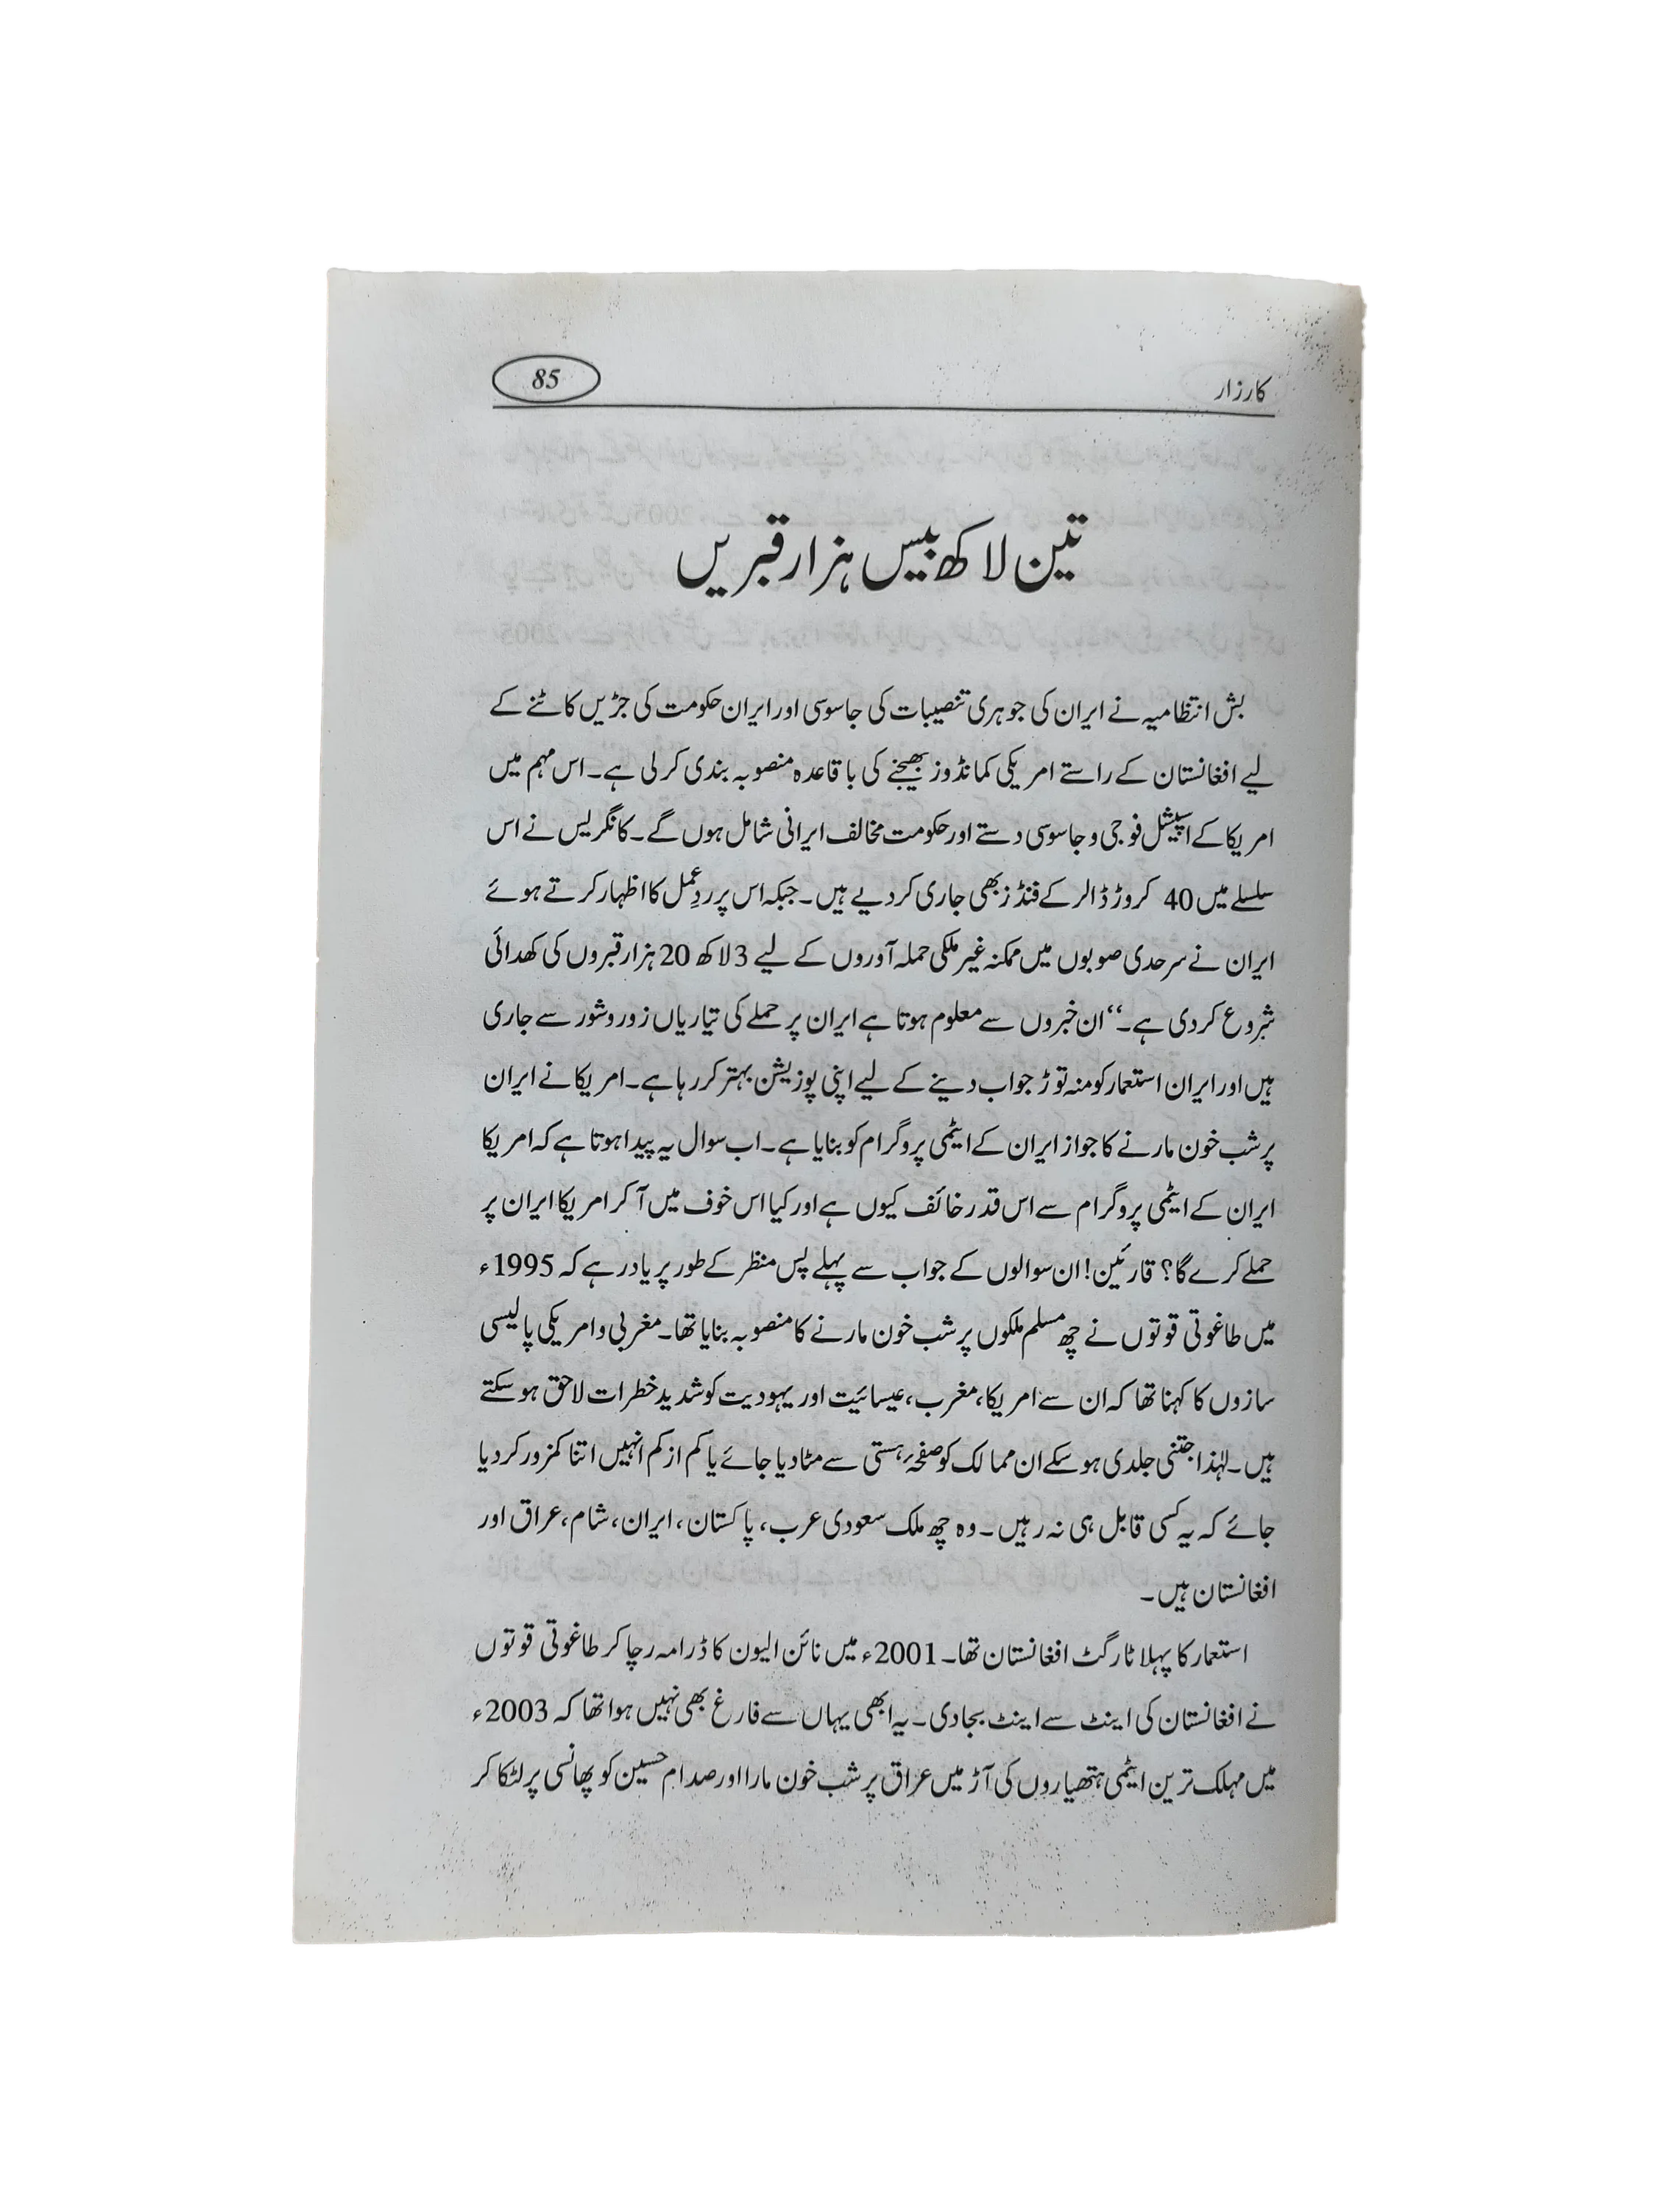 کارزار
85
تین لاکھ بیس ہزار قبریں
بش انتظامیہ نے ایران کی جوہری تنصیبات کی جاسوسی اور ایران حکومت کی جڑیں کاٹنے کے
لیے افغانستان کے راستے امریکی کمانڈوز بھیجنے کی باقاعدہ منصوبہ بندی کرلی ہے۔ اس مہم میں
امریکا کے اسپیشل فوجی و جاسوسی دستے اور حکومت مخالف ایرانی شامل ہوں گے۔ کانگریس نے اس
سلسلے میں 40 کروڑ ڈالر کے فنڈز بھی جاری کردیے ہیں۔ جبکہ اس پر ردِعمل کا اظہار کرتے ہوئے
ایران نے سرحدی صوبوں میں ممکنہ غیر ملکی حملہ آوروں کے لیے 3 لاکھ 20 ہزار قبروں کی کھدائی
شروع کردی ہے۔‘‘ ان خبروں سے معلوم ہوتا ہے ایران پر حملے کی تیاریاں زور و شور سے جاری
ہیں اور ایران استعمار کو منہ توڑ جواب دینے کے لیے اپنی پوزیشن بہتر کررہا ہے۔ امریکا نے ایران
پر شب خون مارنے کا جواز ایران کے ایٹمی پروگرام کو بنایا ہے۔ اب سوال یہ پیدا ہوتا ہے کہ امریکا
ایران کے ایٹمی پروگرام سے اس قدر خائف کیوں ہے اور کیا اس خوف میں آکر امریکا ایران پر
حملے کرے گا؟ قارئین! ان سوالوں کے جواب سے پہلے پس منظر کے طور پر یاد رہے کہ 1995ء
میں طاغوتی قوتوں نے چھ مسلم ملکوں پر شب خون مارنے کا منصوبہ بنایا تھا۔ مغربی و امریکی پالیسی
سازوں کا کہنا تھا کہ ان سے امریکا، مغرب، عیسائیت اور یہودیت کو شدید خطرات لاحق ہوسکتے
ہیں۔ لہٰذا جتنی جلدی ہوسکے ان ممالک کو صفحۂ ہستی سے مٹادیا جائے یا کم از کم انہیں اتنا کمزور کردیا
جائے کہ یہ کسی قابل ہی نہ رہیں۔ وہ چھ ملک سعودی عرب، پاکستان، ایران، شام، عراق اور
افغانستان ہیں۔
استعمار کا پہلا ٹارگٹ افغانستان تھا۔ 2001ء میں نائن الیون کا ڈرامہ رچا کر طاغوتی قوتوں
نے افغانستان کی اینٹ سے اینٹ بجادی۔ یہ ابھی یہاں سے فارغ بھی نہیں ہوا تھا کہ 2003ء
میں مہلک ترین ایٹمی ہتھیاروں کی آڑ میں عراق پر شب خون مارا اور صدام حسین کو پھانسی پر لٹکا کر